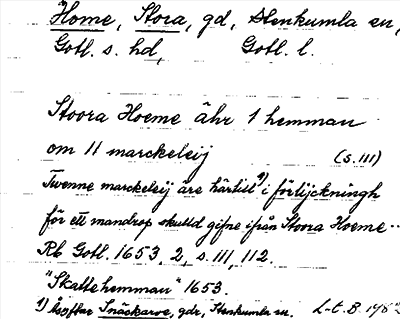 Home, Stora, gd, Stenkumla sn,
Gotl. s. hd, Gotl. l.
Stoora Hoeme ähr 1 hemman
om 11 marckeleij (s. 111)
Twenne marckeleij äre härtill 1) i förlijckningh
för ett mandrop skulld gifne ifrån Stoora Hoeme..
Rb Gotl. 1653, 2, s. 111, 112.
"Skattehemman" 1653.
1) Åsyftar Snäckarve, gdr, Stenkumla sn. L-t. B.